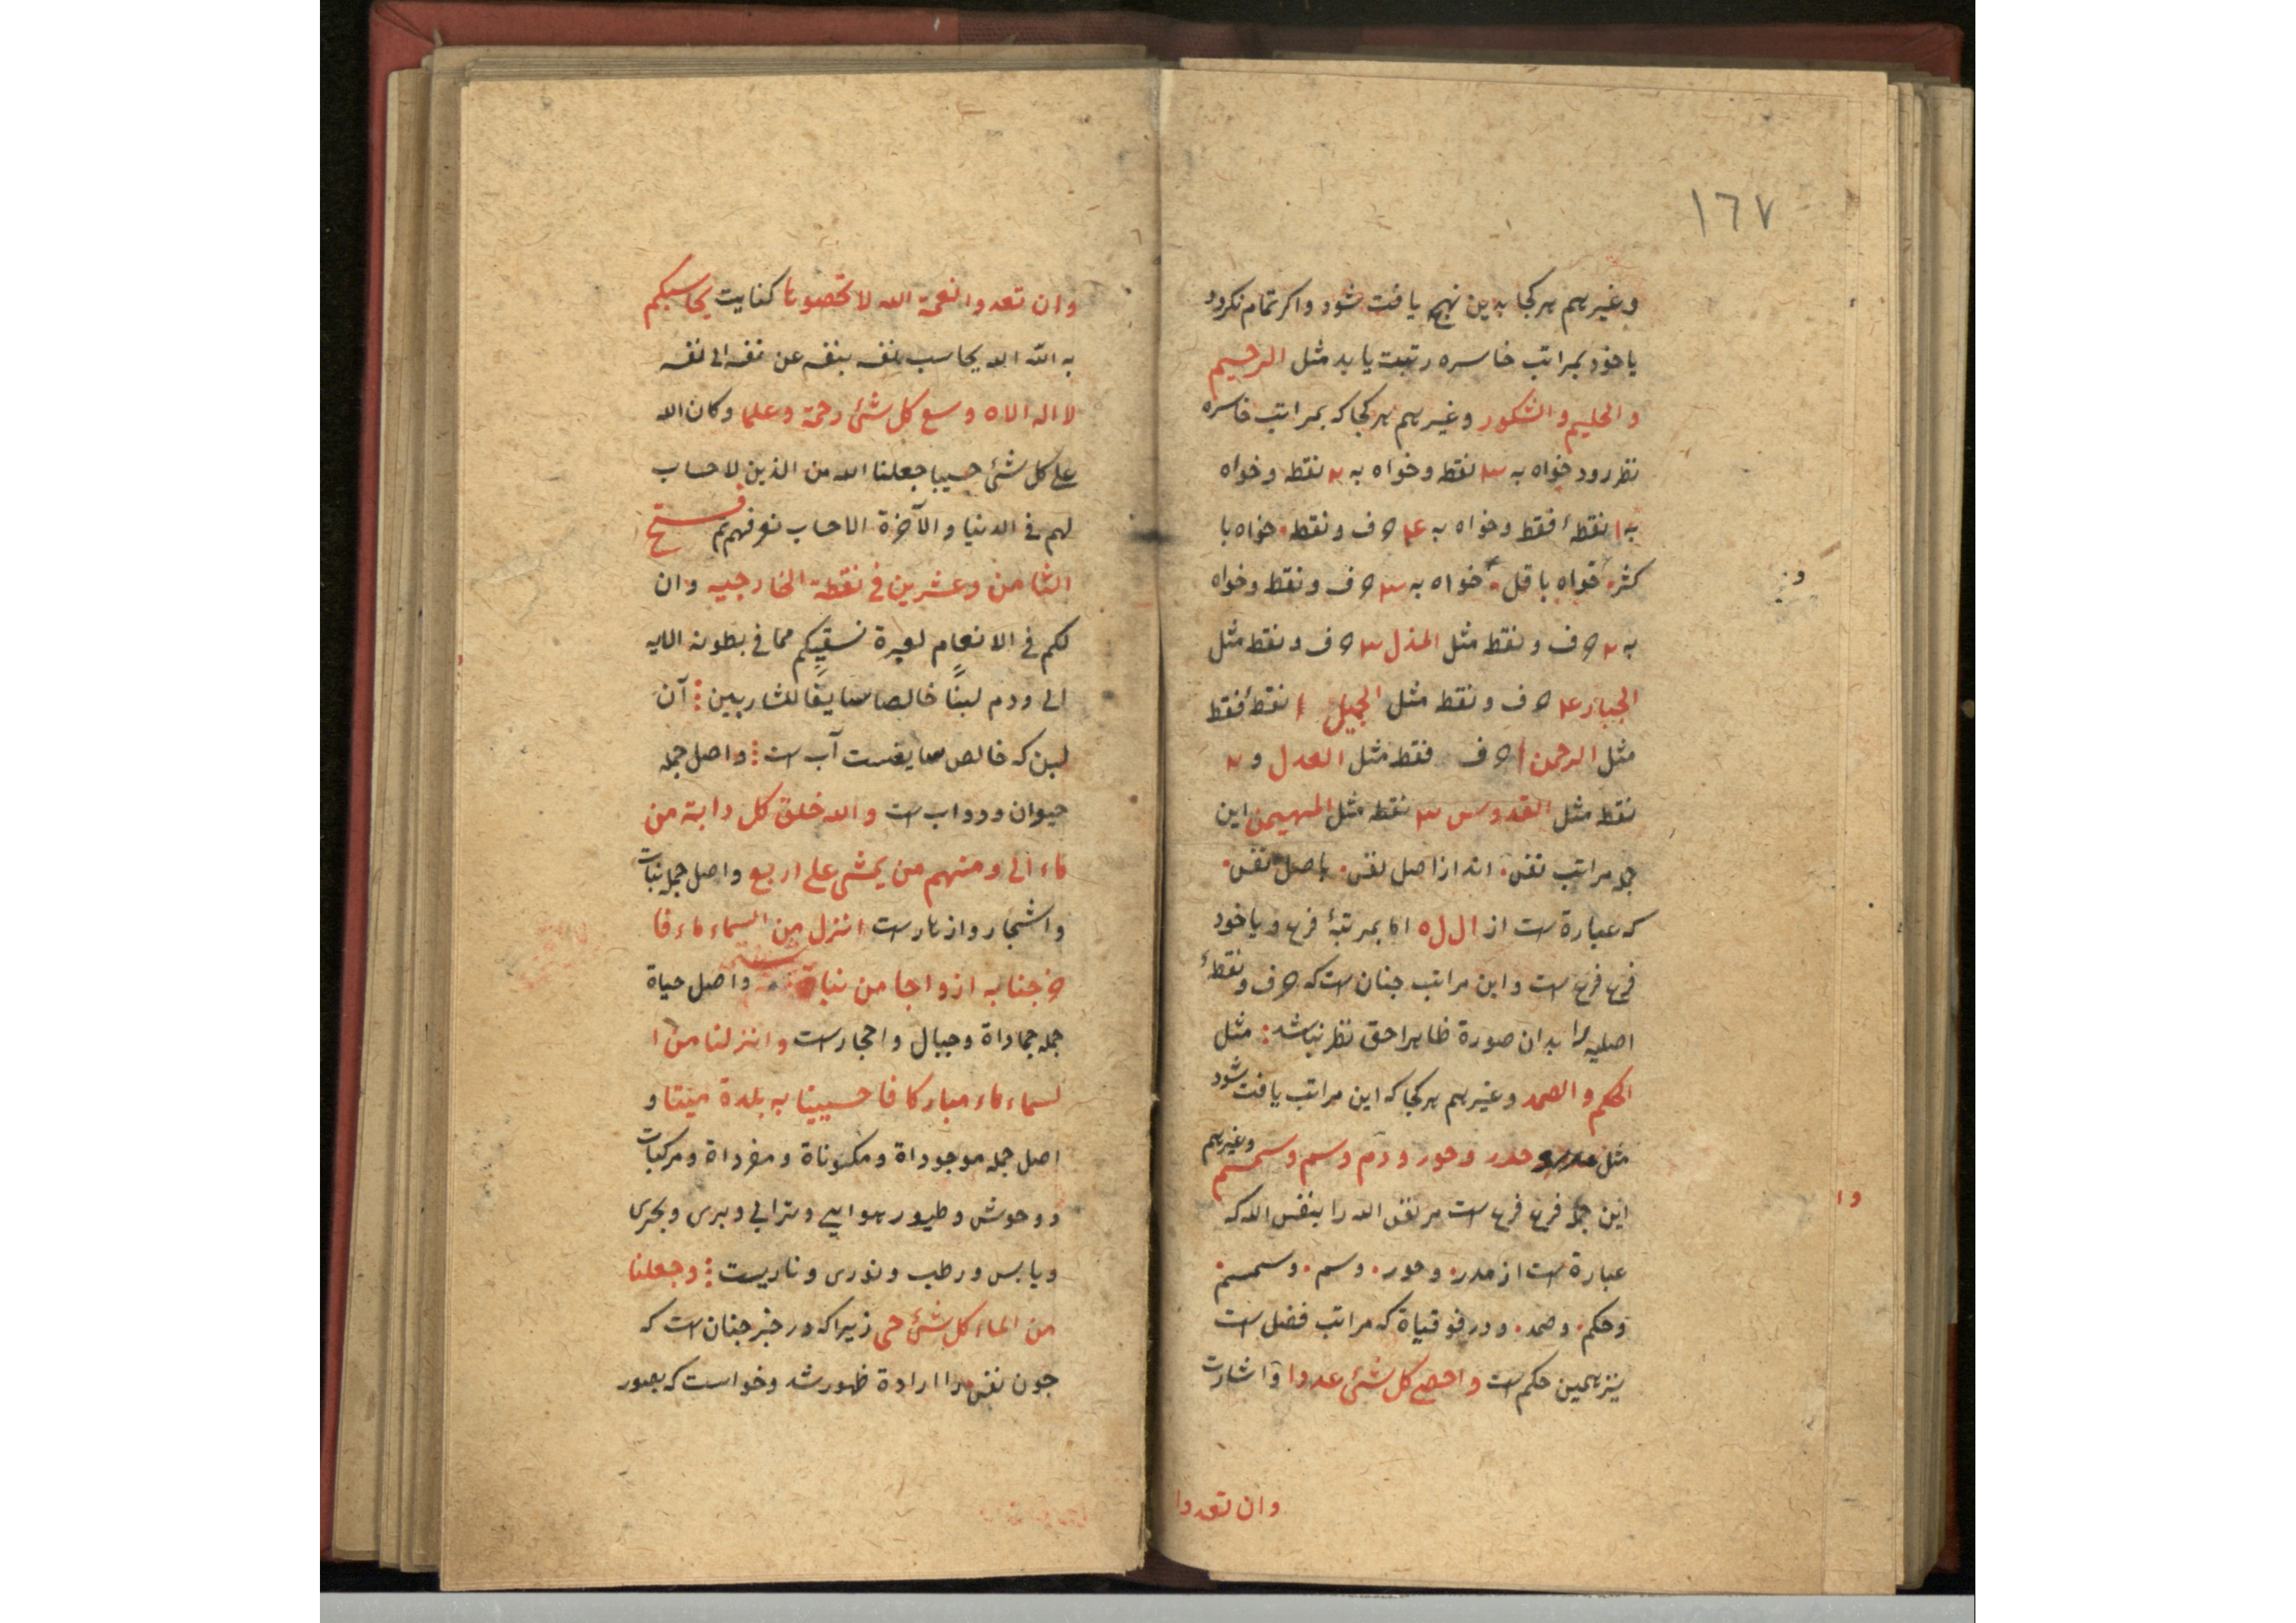 ١٦٧
وغیرهم هرکجا بدین نهج یافت شود واکر تمام نکرود
یا خود بمراتب خاسره رتبت یابد مثل الرحیم
والحلیم والشکور وغیرهم هرکجا که بمراتب خاسره
نظر رود خواه به ٣ نقطه وخواه به ٢ نقطه وخواه
به ١ نقطهٔ فقط وخواه به ٤ حرف ونقطه خواه با
کثر خواه باقل خواه به ٣ حرف ونقطه وخواه
به ٢ حرف ونقطه مثل المذل ٣ حرف ونقطه مثل
الجبار ٤ حرف ونقطه مثل الجمیل ١ نقطهٔ فقط
مثل الرحمن ١ حرف فقط مثل العدل و ٢
نقطه مثل القدوس ٣ نقطه مثل المهیمن این
جمله مراتب نفس اند از اصل نفس باصل نفس
که عبارة است از ال ل ه اما بمرتبهٔ فرع ویا خود
فرع فرع است واین مراتب جنان است که حرف ونقطهٔ
اصلیه را بدان صورة ظاهرا حق نظر نباشد مثل
الحکم والصمد وغیرهم هرکجا که این مراتب یافت شود
مثل حدر وحور ودم وسم وسمسم وغیرهم
این جمله فرع فرع است مر نفس الله را بنفس الله که
عبارة است از مدر وحور وسم وسمسم
وحکم وصمد ودر فوقیاة که مراتب فضل است
نیز همین حکم است واحصی کل شیٔ عددا واشارت
وان تعدوا
وان تعدوا نعمة الله لا تحصوها کنایت یحاسبکم
به الله الله یحاسب نفسه بنفسه عن نفسه الی نفسه
لا اله الا ه وسع کل شیٔ رحمة وعلما وکان الله
علی کل شیٔ حسیبا جعلنا الله من الذین لا حساب
لهم فی الدنیا والآخرة الا حساب نعرفهم تم فتح
الثامن وعشرین فی نقطة الخارجیه وان
لکم فی الانعام لعبرة نسقیکم مما فی بطونه الایه
الی ودم لبنًا خالصا سایغًا للشاربین آن
لبن که خالص سایغست آب است واصل جمله
حیوان ودواب است والله خلق کل دابة من
ماء الی ومنهم من یمشی علی اربع واصل جمله نبات
واشجار وازهار است انزل من السماء ماء فا
خرجنا به ازواجا من نباة شتی واصل حیاة
جمله جماداة وجبال واحجار است وانزلنا من ا
لسماء ماء مبارکا فاحییینا به بلدة میتا و
اصل جمله موجوداة ومکوناة ومفرداة ومرکبات
ووحوش وطیور هوایی وترابی وبری وبحری
ویابس ورطب ونوری وناریست وجعلنا
من الماء کل شیٔ حی زیراکه در خبر جنان است که
جون نفس را ارادة ظهور شد وخواست که بصور